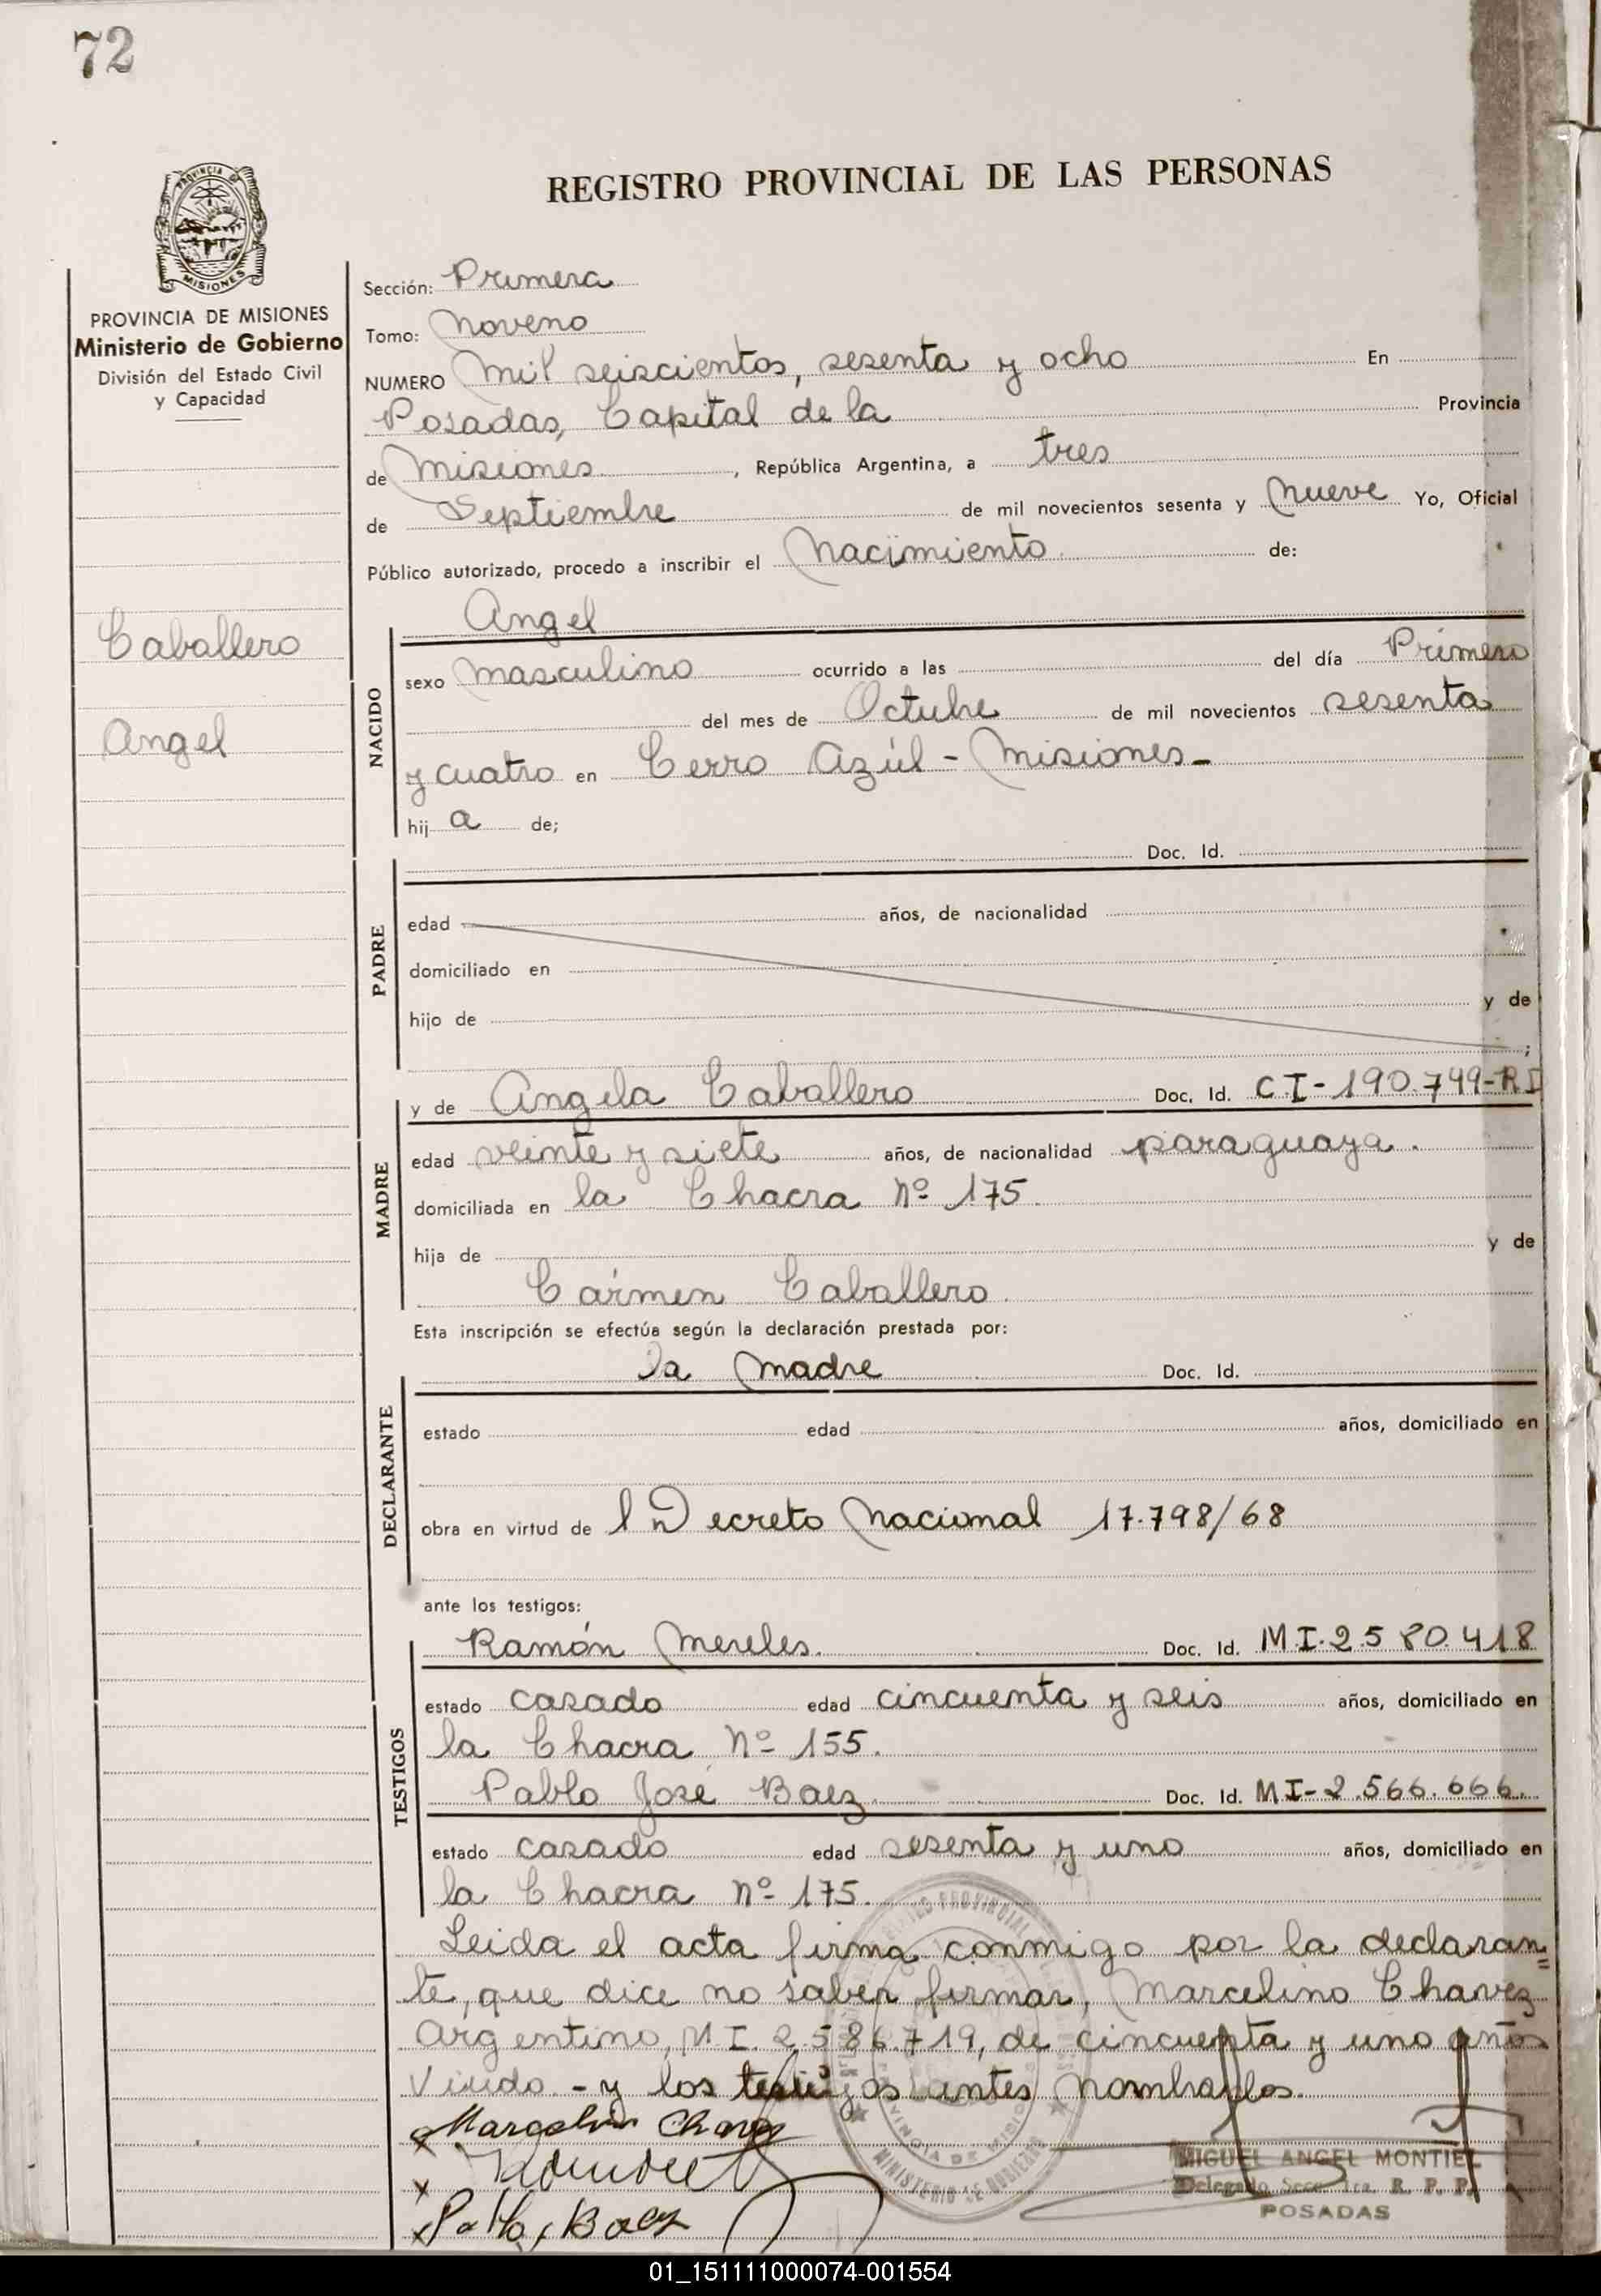 72
PROVINCIA DE
MISIONES
REGISTRO PROVINCIAL DE LAS PERSONAS
PROVINCIA DE MISIONES
Ministerio de Gobierno
División del Estado Civil
y Capacidad
Caballero
Angel
Sección: Primera
Tomo: Noveno
NUMERO Mil seiscientos, sesenta y ocho En
Posadas, Capital de la Provincia
de Misiones, República Argentina, a tres
de Septiembre de mil novecientos sesenta y nueve Yo, Oficial
Público autorizado, procedo a inscribir el Nacimiento de:
NACIDO
Angel
sexo masculino ocurrido a las del día Primero
del mes de Octubre de mil novecientos sesenta
y cuatro en Cerro Azúl - Misiones -
hij a de;
PADRE
Doc. Id.
edad años, de nacionalidad
domiciliado en
hijo de y de
;
MADRE
y de Angela Caballero Doc. Id. C.I-190.749-RI
edad veinte y siete años, de nacionalidad paraguaya.
domiciliada en la Chacra Nº 175.
hija de y de
Cármen Caballero.
Esta inscripción se efectúa según la declaración prestada por:
DECLARANTE
la madre Doc. Id.
estado edad años, domiciliado en
obra en virtud de l Decreto Nacional 17.798/68
ante los testigos:
TESTIGOS
Ramón Mereles. Doc. Id. M I. 2.580.418
estado casado edad cincuenta y seis años, domiciliado en
la Chacra Nº 155.
Pablo José Baez Doc. Id. M I-2.566.666.
estado casado edad sesenta y uno años, domiciliado en
la Chacra nº 175.
Leida el acta firma conmigo por la declaran=
te, que dice no saber firmar, Marcelino Chavez
Argentino, M.I. 2.586.719, de cincuenta y uno años
Viudo - y los testigos antes nombrados.
x Marcelino Chavez
x
x Pablo J Baez
MINISTERIO DE GOBIERNO
MIGUEL ANGEL MONTIEL
Delegado Secc. 1ra. R. P. P.
POSADAS
01_151111000074-001554